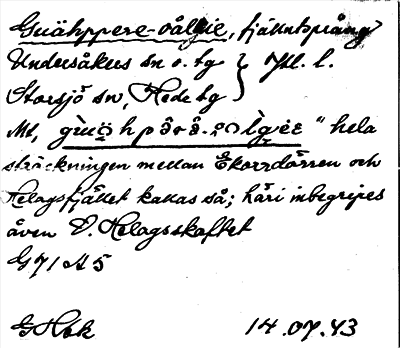 Guähppere-oålgie, fjällutsprång
Undersåkers sn o. tg } Jtl. l.
Storsjö sn, Hede tg
Mt, "hela
sträckningen mellan Ekorrdörren och
Helagsfjället kallas så; häri inbegripes
även V. Helagsskaftet
G 71 A 5
G Hbk 14.07.43